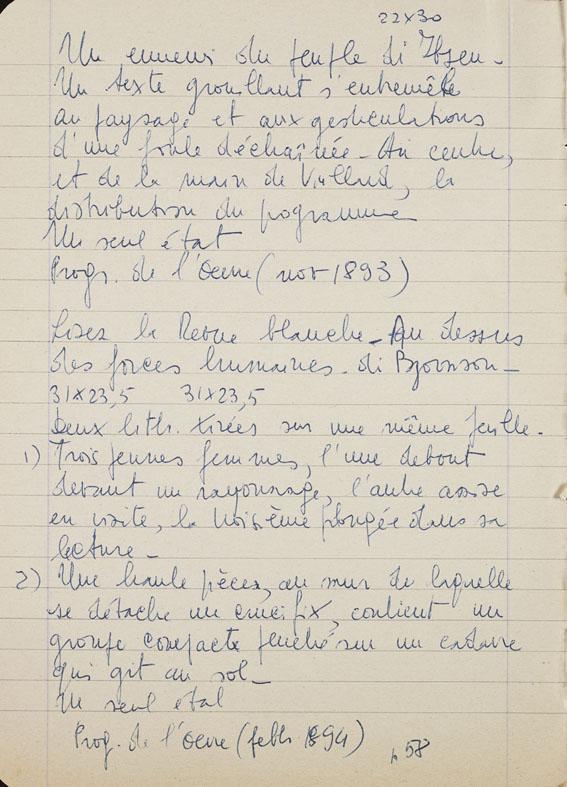 22x30
Un ennemi du peuple di Ibsen -
Un texte grouillant s'entremêle
au paysage et aux gesticulations
d'une foule déchaînée - Au centre,
et de la main de Vuillard, la
distribution du programme
Un seul état
Progr. de l'Oeuvre (nov 1893)
Lisez la Revue blanche - Au dessus
des forces humaines - di Bjornson -
31x23,5 31x23,5
Deux lith. tirées sur une même feuille.
1) Trois jeunes femmes, l'une debout
devant un rayonnage, l'autre assise
en visite, la troisième plongée dans sa
lecture -
2) Une haute pièce, au mur de laquelle
se détache un crucifix, contient un
groupe compacte penché sur un cadavre
qui gît au sol -
Un seul état
Prog. de l'Oeuvre (febb 1894)
p 58